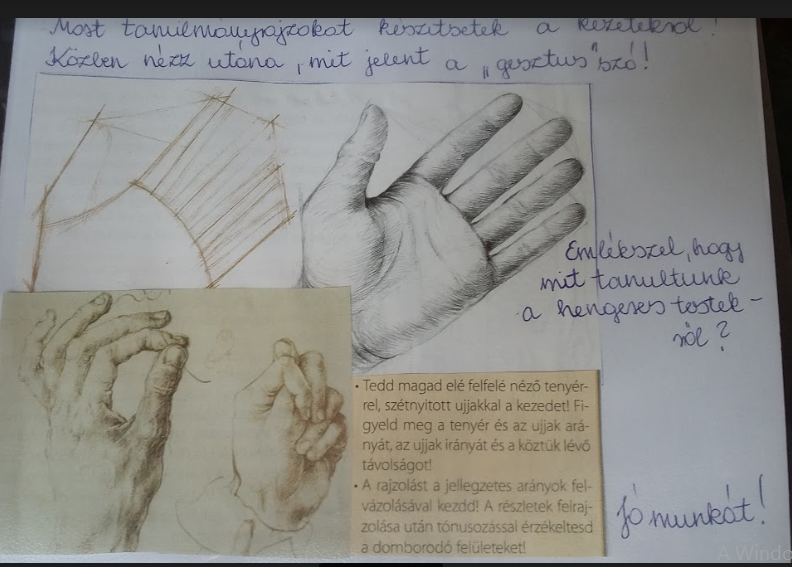 Most tanulmányrajzokat készítsetek a kezetekről!
Közben nézz utána, mit jelent a „gesztus” szó!
Emlékszel, hogy
mit tanultunk
a hengeres testek-
ről?
• Tedd magad elé felfelé néző tenyér-
rel, szétnyitott ujjakkal a kezedet! Fi-
gyeld meg a tenyér és az ujjak ará-
nyát, az ujjak irányát és a köztük lévő
távolságot!
• A rajzolást a jellegzetes arányok fel-
vázolásával kezdd! A részletek felraj-
zolása után tónusozással érzékeltesd
a domborodó felületeket!
Jó munkát!
A Windo